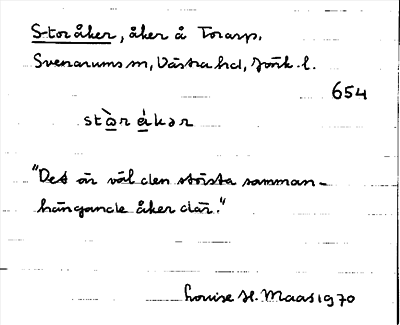 Storåker, åker å Torarp.
Svenarums sn, Västra hd, Jönk. l.
654
stòr ákər
"Det är väl den största samman-
hängande åker där."
Louise H. Maas 1970